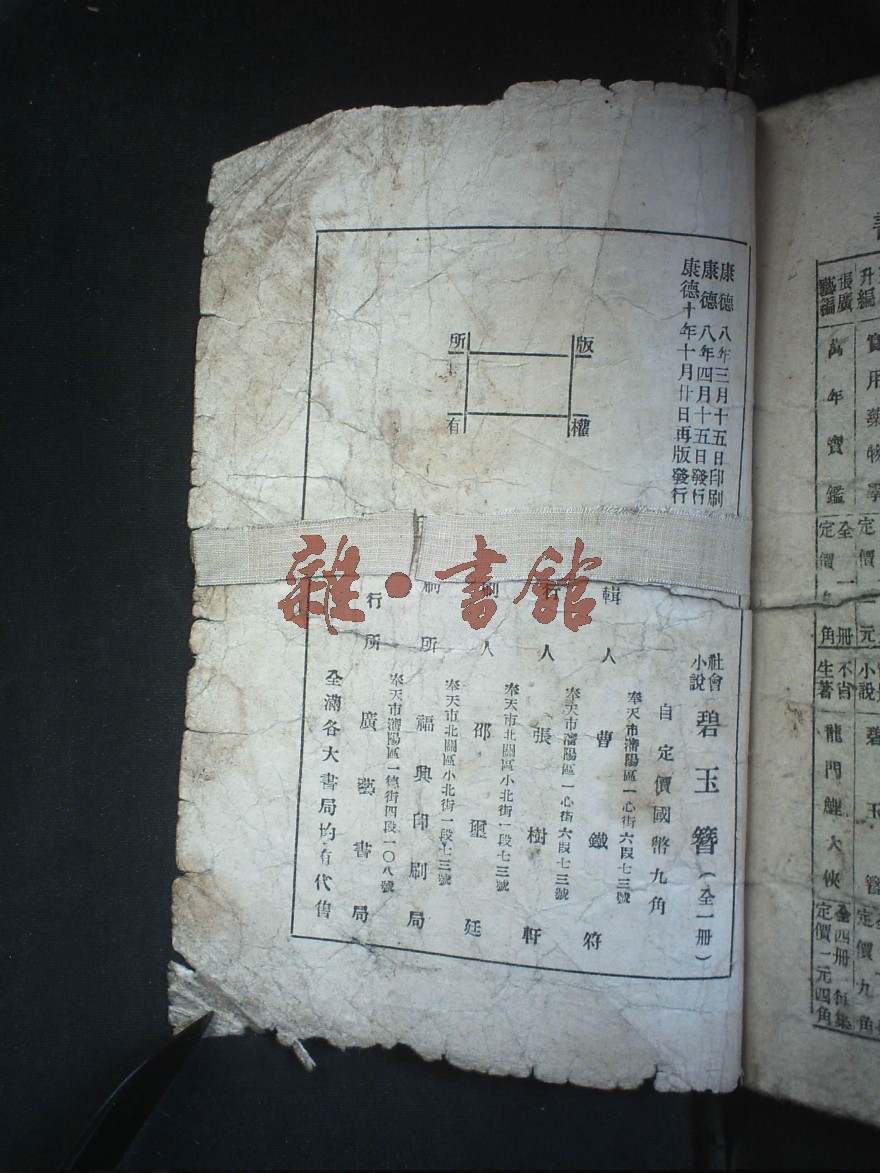 康德八年三月十五日印刷
康德八年四月十五日發行
康德十年十月廿日再版發行
版權所有
社會小說 碧玉簪（全一冊）
自定價國幣九角
奉天市瀋陽區一心街六段七三號
輯人 曹鐵符
奉天市瀋陽區一心街六段七三號
人 張樹軒
奉天市北關區小北街一段七三號
刷人 邵璽廷
奉天市北關區小北街一段七三號
刷所 福興印刷局
奉天市瀋陽區一德街四段一〇八號
行所 廣藝書局
全滿各大書局均有代售
雜·書館
藥物學
定價一元
小說
碧玉簪
定價九角
張廣藝編
萬年寶鑑
全一冊
定價一角
不肖生著
龍門鯉大俠
全四冊
定價一元四角